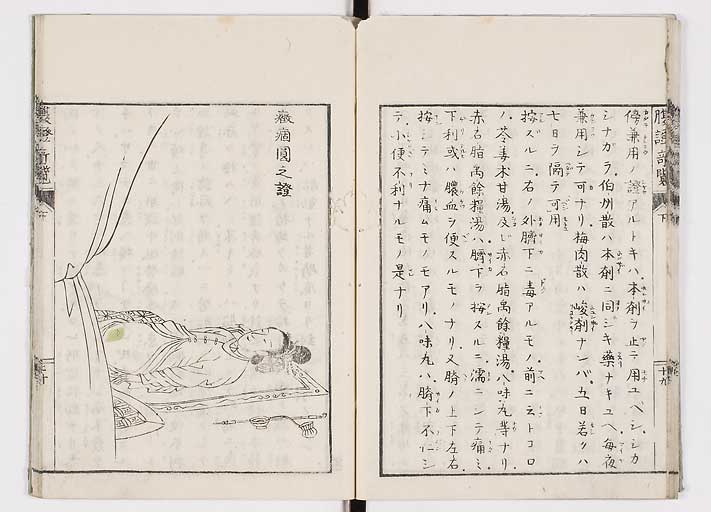 傍兼用ノ證アルトキハ本劑ヲ止テ用ユベシシカ
シナガラ伯州散ハ本劑ニ同シキ藥ナキユヘ毎夜
兼用シテ可ナリ梅肉散ハ峻劑ナレバ五日若クハ
七日ヲ隔テ可用
按ズルニ右ノ外臍下ニ毒アルモノ前ニ云トコロ
ノ苓姜朮甘湯及ビ赤石脂禹餘糧湯八味丸等ナリ
赤石脂禹餘糧湯ハ臍下ヲ按スルニ濡ニシテ痛ミ
下利或ハ膿血ヲ便スルモノナリ又臍ノ上下左右
按シテミナ痛ムモノモアリ八味丸ハ臍下不仁シ
テ小便不利ナルモノ是ナリ
十九
之證
二十